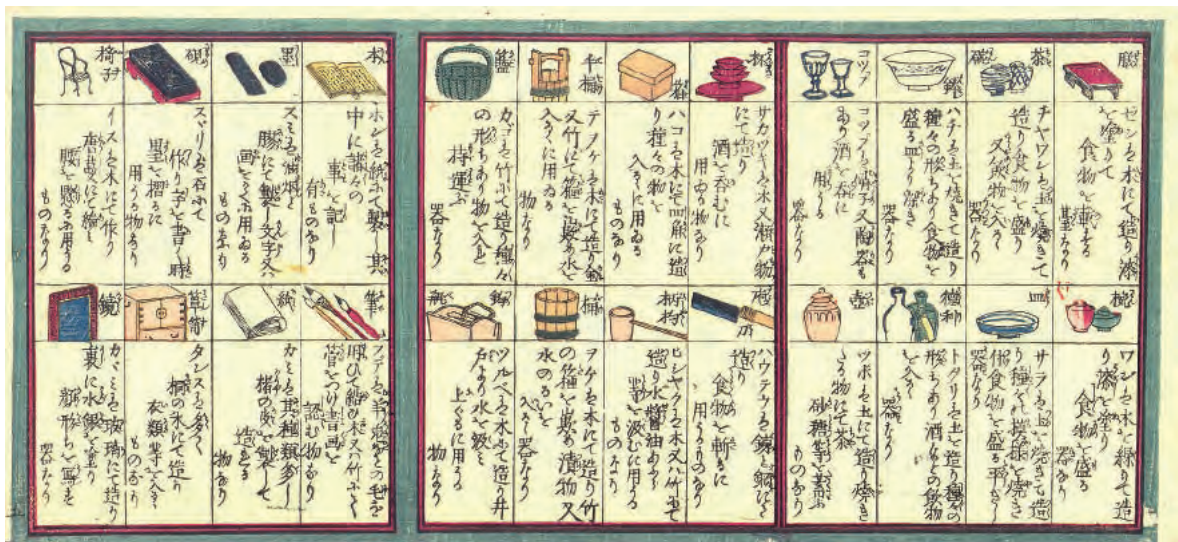 膳
ゼンハ木にて造り漆
を塗りて
食物を乗する
器なり
茶碗
チヤワンハ土を焼きて
造り食物を盛り
又飲物を入るゝ
器なり
鉢
ハチハ土を焼きて造り
種々の形ちあり食物を
盛る皿より深き
器なり
コツプ
コツプハ硝子又陶器も
あり酒を呑に
用うる
器なり
椀
ワンハ木を繰りて造
り漆を塗り
食物を盛る
器なり
皿
サラハ土を焼きて造
り種々の模様を焼き
付食物を盛る平たき
器なり
徳利
トクリハ土を造り種々の
形ちあり酒などの飲物
を入るゝ
器なり
壺
ツボハ土にて造り焼き
たる物にて茶
砂糖等を蓄ふ
ものなり
杯
サカツキハ木又漆か物
にて造り
酒を呑むに
用ゐる物なり
箱
ハコハ木にて四角に造
り種々の物を
入るゝに用ゐる
ものなり
手桶
テヲケハ木にて造り金
又竹にて箍を嵌め水を
入るゝに用ゐる
物なり
籃
カゴハ竹にて造り種々
の形ちあり物を入れ
持運ぶ
器なり
造り
食物を斬るに
用うるものなり
柄杓
ヒシヤクハ木又ハ竹にて
造り水醤油などの
類を汲むに用うる
ものなり
桶
ヲケハ木にて造り竹
の箍を嵌め漬物又
水のるいを
入るゝ器なり
釣瓶
ツルベハ木にて造り井
戸より水を汲み
上ぐるに用うる
物なり
本
ホンハ紙にて製し其
中に諸々の
事を記し
有ものなり
墨
スミハ油烟を
膠にて製し文字又ハ
画をかくに用ゐる
ものなり
硯
スヾリハ石にて
作り字を書く時
墨を摺るに
用うる物なり
椅子
イスハ木にて作り
腰を懸るに用うる
ものなり
筆
フデハ羊鹿などの毛を
用ひて結ひ木又ハ竹にて
管をつけ書画を
認むる物なり
紙
カミハ其種類多し
楮の皮を製して
造る
物なり
箪笥
タンスハ多く
桐の木にて造り
衣類等を入るゝ
ものなり
鏡
カヾミハ玻璃にて造り
裏に水銀を塗り
顔形ちを写す
器なり